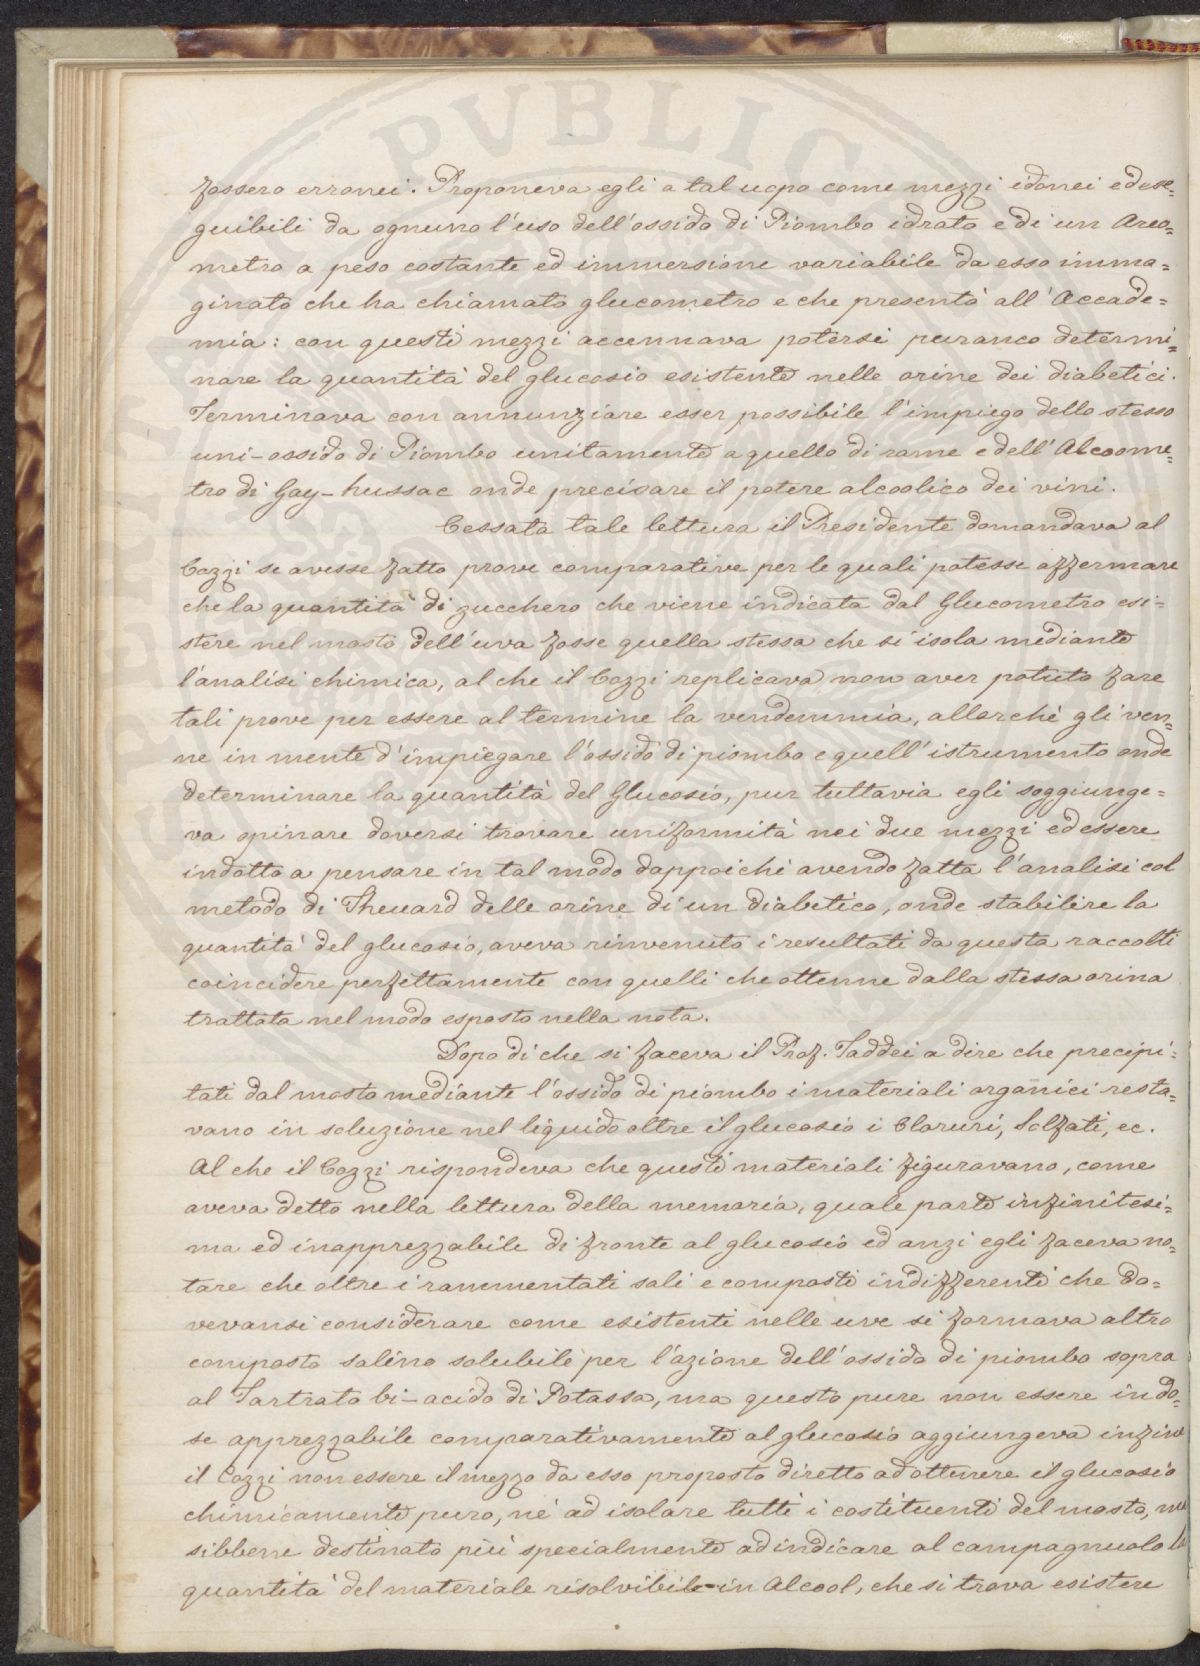 PVBLIC
fossero erronei. Proponeva egli a tal uopo come mezzi idonei ed ese=
guibili da ognuno l'uso dell'ossido di Piombo idrato e di un Areo=
metro a peso costante ed immersione variabile da esso imma=
ginato che ha chiamato glucometro e che presentò all'Accade=
mia: con questi mezzi accennava potersi puranco determi=
nare la quantità del glucosio esistente nelle orine dei diabetici.
Terminava con annunziare esser possibile l'impiego dello stesso
uni-ossido di Piombo unitamente a quello di rame e dell'Alcoome=
tro di Gay-hussac onde precisare il potere alcoolico dei vini.
Cessata tale lettura il Presidente domandava al
Cozzi se avesse fatto prove comparative per le quali potesse affermare
che la quantità di zucchero che viene indicata dal Glucometro esi=
stere nel mosto dell'uva fosse quella stessa che si isola mediante
l'analisi chimica, al che il Cozzi replicava non aver potuto fare
tali prove per essere al termine la vendemmia, allorchè gli ven=
ne in mente d'impiegare l'ossido di piombo e quell'istrumento onde
determinare la quantità del Glucosio, pur tuttavia egli soggiunge=
va opinare doversi trovare uniformità nei due mezzi ed essere
indotto a pensare in tal modo dappoichè avendo fatta l'analisi col
metodo di Thenard delle orine di un diabetico, onde stabilire la
quantità del glucosio, aveva rinvenuto i resultati da questa raccolti
coincidere perfettamente con quelli che ottenne dalla stessa orina
trattata nel modo esposto nella nota.
Dopo di che si faceva il Prof. Taddei a dire che precipi=
tati dal mosto mediante l'ossido di piombo i materiali organici resta=
vano in soluzione nel liquido oltre il glucosio i Cloruri, Solfati, ec.
Al che il Cozzi rispondeva che questi materiali figuravano, come
aveva detto nella lettura della memoria, quale parte infinitesi=
ma ed inapprezzabile di fronte al glucosio ed anzi egli faceva no=
tare che oltre i rammentati sali e composti indifferenti che do=
vevansi considerare come esistenti nelle uve si formava altro
composto salino solubile per l'azione dell'ossido di piombo sopra
al Tartrato bi-acido di Potassa, ma questo pure non essere in do=
se apprezzabile comparativamente al glucosio aggiungeva infine
il Cozzi non essere il mezzo da esso proposto diretto ad ottenere il glucosio
chimicamente puro, nè ad isolare tutti i costituenti del mosto, ma
sibbene destinato più specialmente ad indicare al campagnuolo la
quantità del materiale risolvibile in Alcool, che si trova esistere